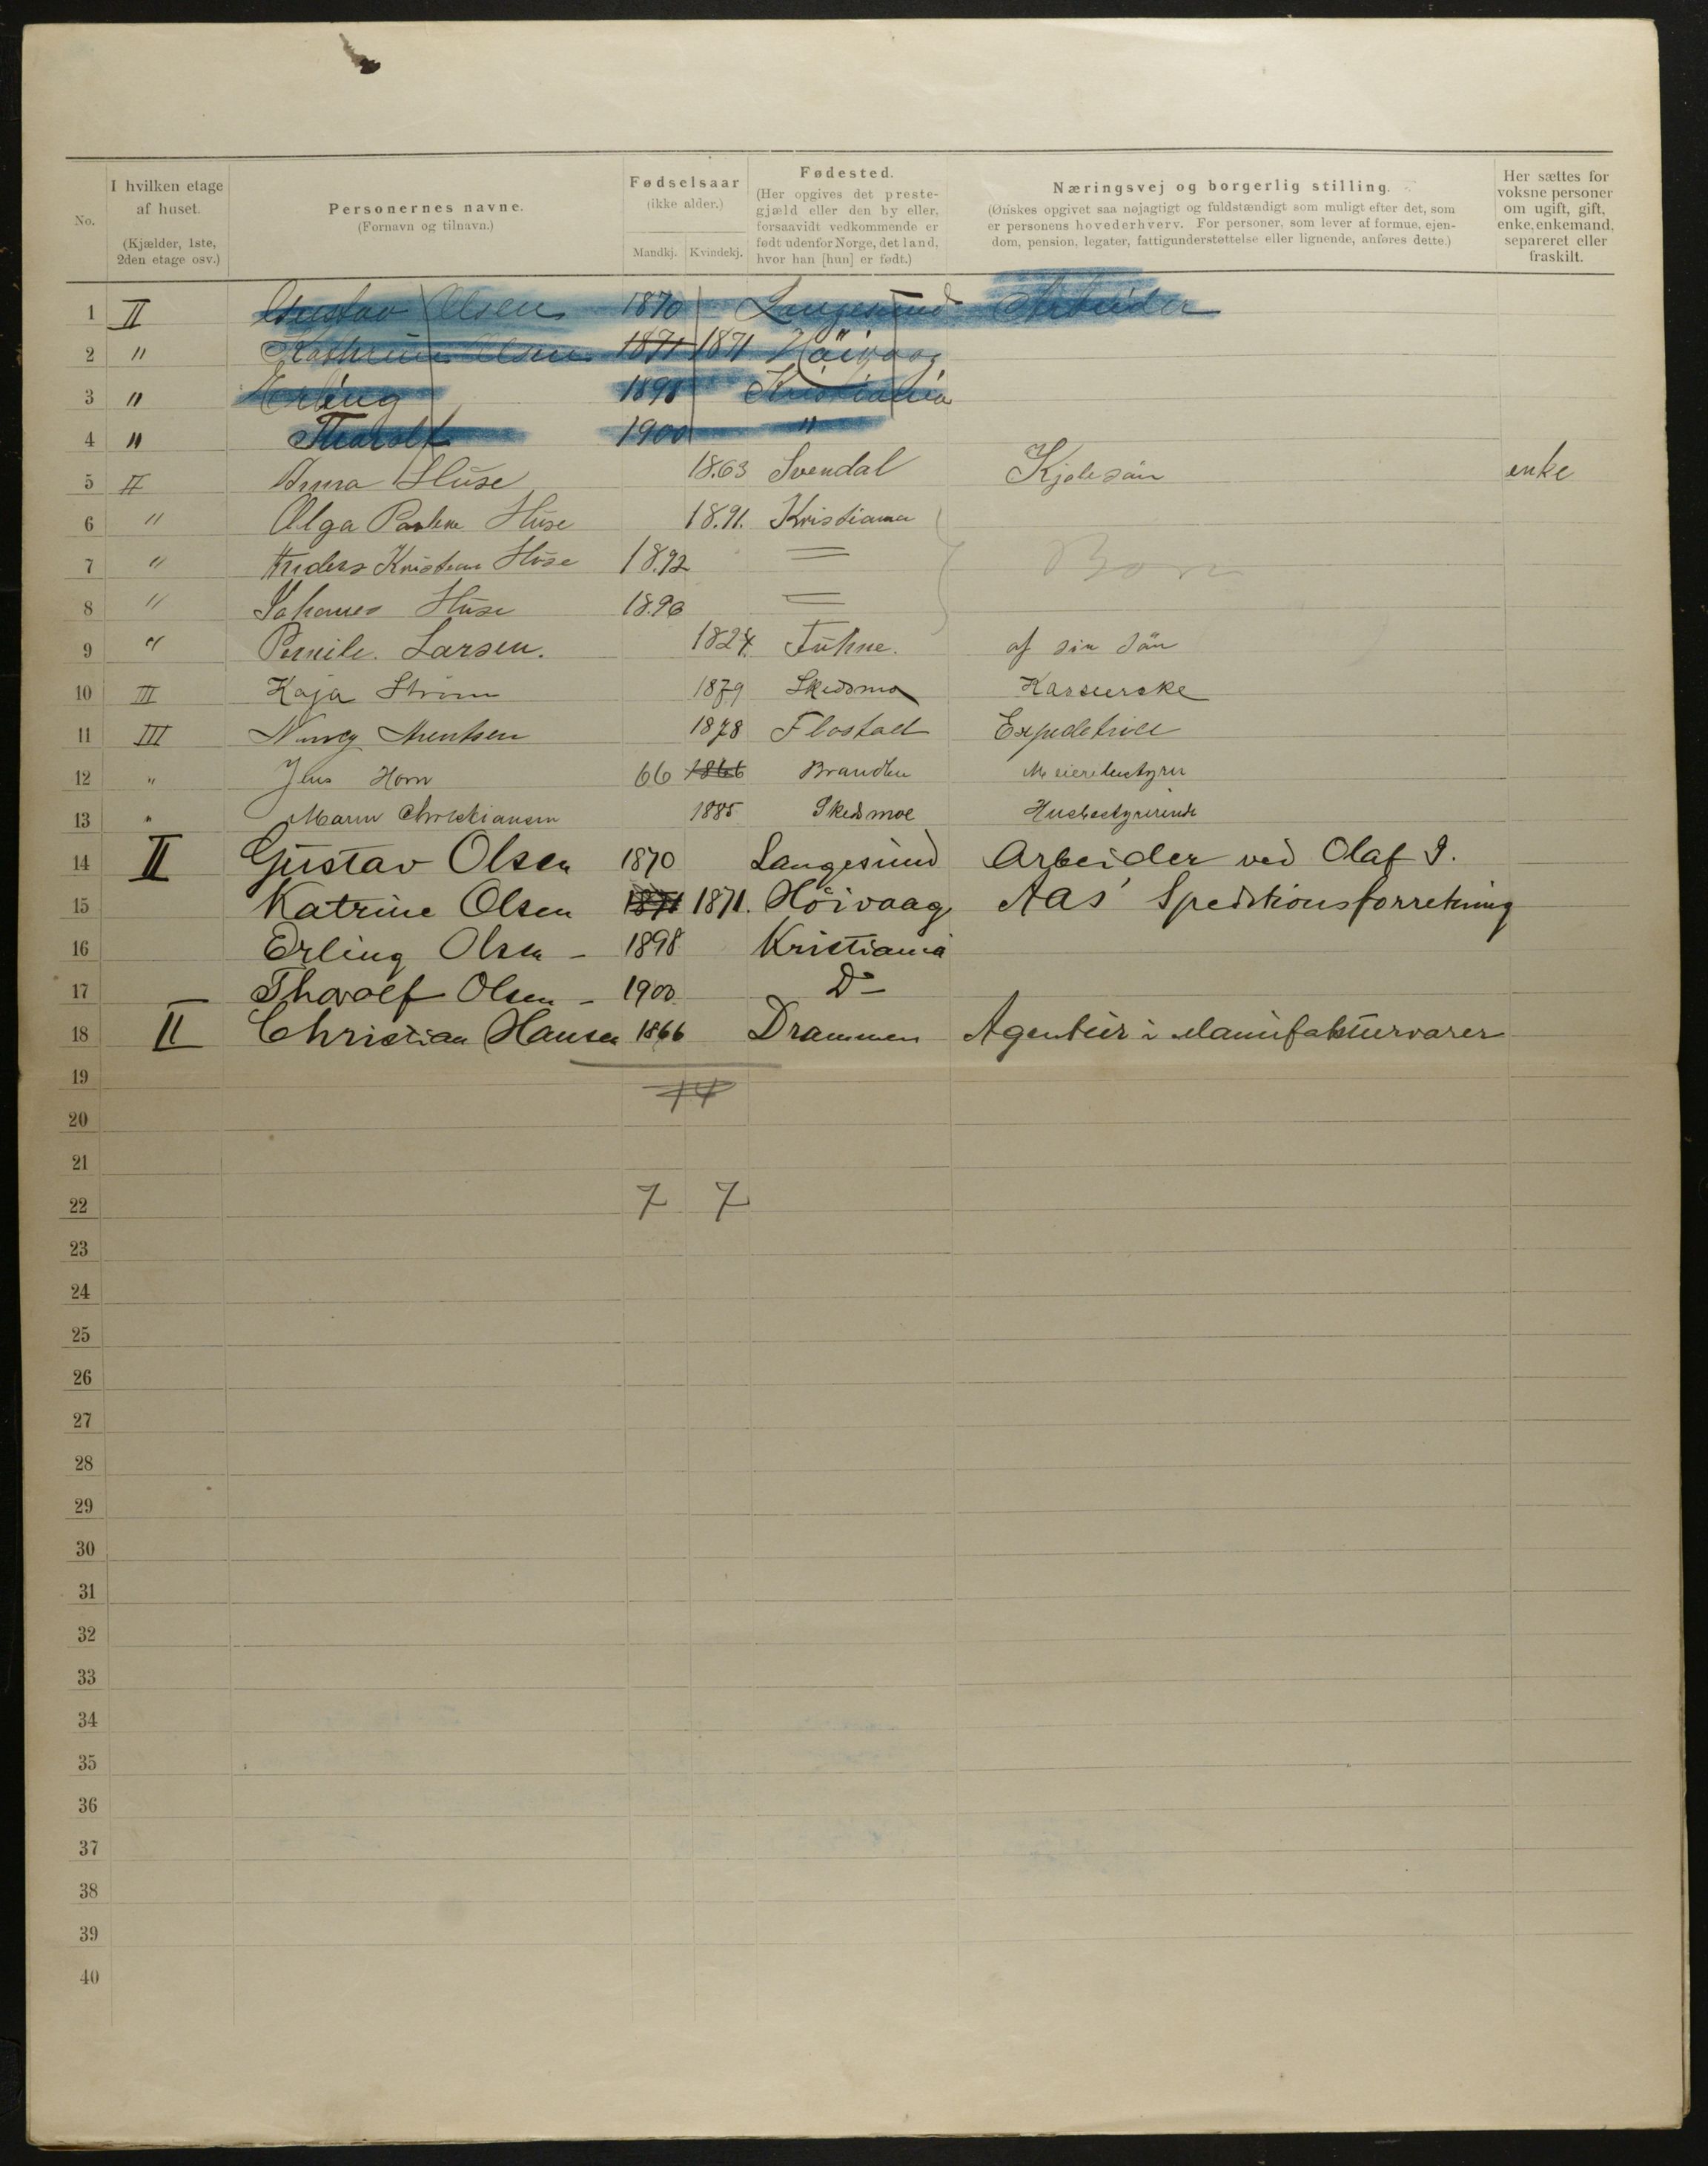 No.
I hvilken etage
af huset.
(Kjælder, 1ste,
2den etage osv.)
Personernes navne.
(Fornavn og tilnavn.)
Fødselsaar
(ikke alder.)
Mandkj. Kvindekj.
Fødested.
(Her opgives det preste-
gjæld eller den by eller,
forsaavidt vedkommende er
født udenfor Norge, det land,
hvor han [hun] er født.)
Næringsvej og borgerlig stilling.
(Ønskes opgivet saa nøjagtigt og fuldstændigt som muligt efter det, som
er personens hovederhverv. For personer, som lever af formue, ejen-
dom, pension, legater, fattigunderstøttelse eller lignende, anføres dette.)
Her sættes for
voksne personer
om ugift, gift,
enke, enkemand,
separeret eller
fraskilt.
1 II Gustav Olsen 1870 Langesund Arbeider
2 " Kathrine Olsen 1871 1871 Höivaag
3 " Erling 1898 Kristiania
4 " Tharolf 1900 "
5 II Anna Huse 1863 Svendal Kjolesöm enke
6 " Olga Huse 1891. Kristiania
7 " Anders Kristian Huse 1892 =
8 " Johanes Huse 1896 = Born
9 " Pernile. Larsen. 1824. af sin Sön
10 III Kaja Ström 1879 Skedsmo
11 III 1878 Flostad Expeditrice
12 " Jens Horn 66 1866 Brandbu Meieribestyrer
13 " Maren Christiansen 1885 Skedsmoe Husbestyrerinde
14 II Gustav Olsen 1870 Langesund Arbeider ved Olaf I.
15 Katrine Olsen 1871 1871. Höivaag Aas' Speditionsforretning
16 Erling Olsen - 1898 Kristiania
17 Tharolf Olsen - 1900 Do
18 II Christian Hansen 1866 Drammen Agentur i Manufakturvarer
19
14
20
21
22 7 7
23
24
25
26
27
28
29
30
31
32
33
34
35
36
37
38
39
40